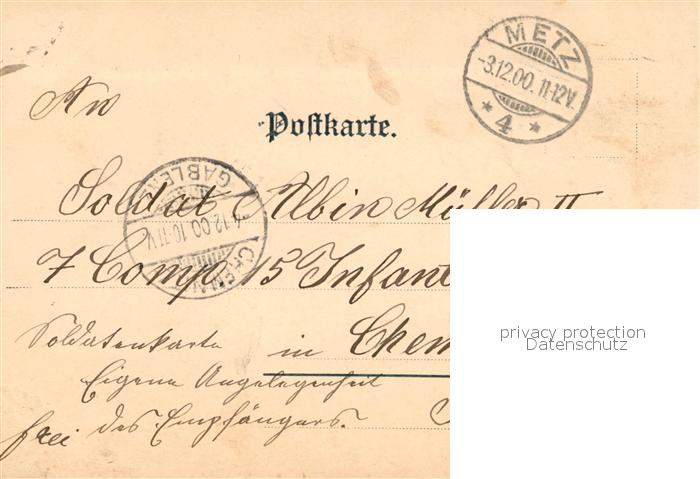 METZ
-3.12.00. 11-12V.
* 4 *
An
Postkarte.
GABLENZ
4.12.00. 10-11V.
CHEMN
Soldat Albin Müller II
7 Comp 15 Infant
in Chem
Soldatenkarte
Eigene Angelegenheit
des Empfängers.
frei
privacy protection
Datenschutz